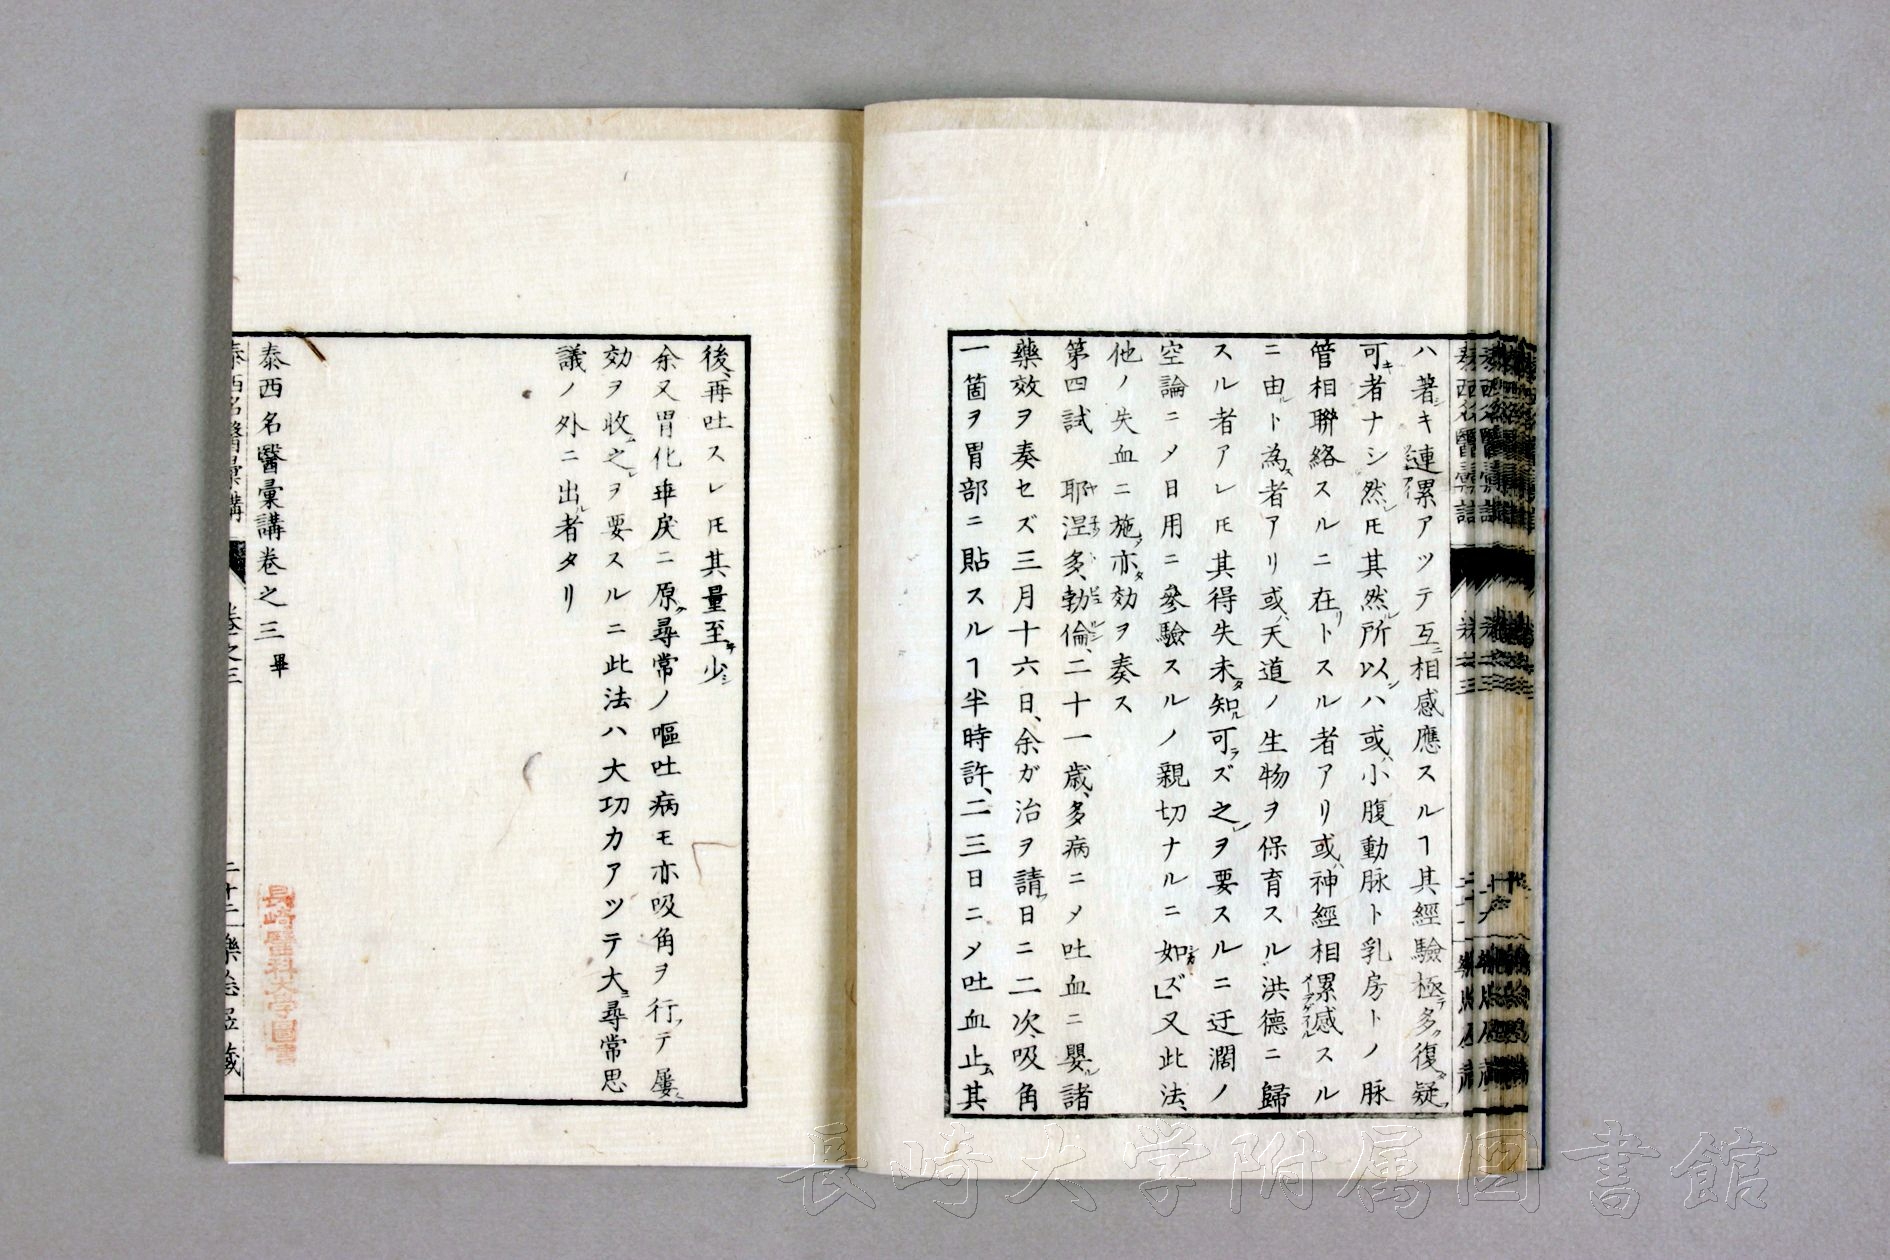 ハ著シキ連累アツテ互ニ相感應スルヿ其經驗極テ多タ復疑フ
可キ者ナシ然ルモ其然ル所以ンハ或ハ小腹動脉ト乳房トノ脉
管相聯絡スルニ在リトスル者アリ或ハ神經相累感スル
ニ由ルト為ス者アリ或ハ天道ノ生物ヲ保育スル洪德ニ歸
スル者アレ𪜈其得失未タ知ル可ラズ之レヲ要スルニ迂濶ノ
空論ニ〆日用ニ參驗スルノ親切ナルニ如カズ」又此法、
他ノ失血ニ施ス亦タ効ヲ奏ス
第四試 耶涅多、勃倫、二十一歳、多病ニ〆吐血ニ嬰ル諸
藥效ヲ奏セズ三月十六日、余ガ治ヲ請フ日ニ二次、吸角
一箇ヲ胃部ニ貼スルヿ半時許、二三日ニ〆吐血止ム其
後、再吐スレ𪜈其量至テ少シ
余又胃化𠦪戻ニ原ク尋常ノ嘔吐病モ亦吸角ヲ行フテ屢ニ
効ヲ收ム之レヲ要スルニ此法ハ大功力アツテ大ニ尋常思
議ノ外ニ出ル者タリ
泰西名醫彙講卷之三 畢
泰西名醫彙講 卷之三 二十二
長崎醫科大学圖書
長崎大学附属図書館